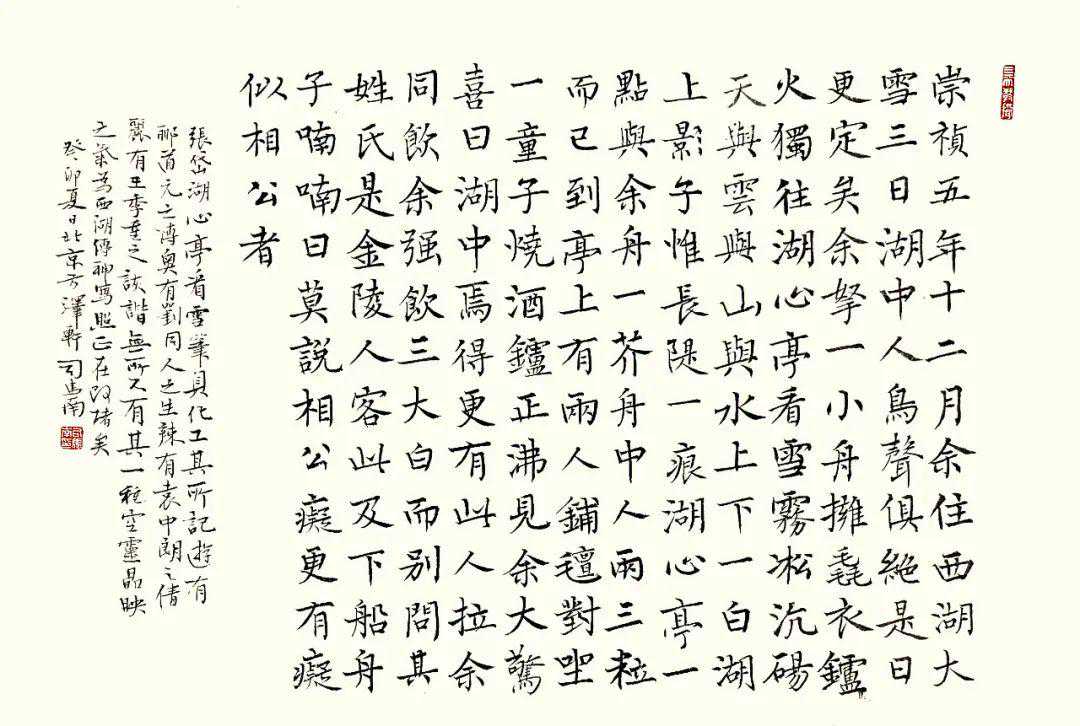 崇禎五年十二月余住西湖大
雪三日湖中人鳥聲俱絕是日
更定矣余拏一小舟擁毳衣鑪
火獨往湖心亭看雪霧凇沆碭
天與雲與山與水上下一白湖
上影子惟長隄一痕湖心亭一
點與余舟一芥舟中人兩三粒
而已到亭上有兩人鋪氊對坐
一童子燒酒鑪正沸見余大驚
喜曰湖中焉得更有此人拉余
同飲余强飲三大白而別問其
姓氏是金陵人客此及下船舟
子喃喃曰莫說相公癡更有癡
似相公者
張岱湖心亭看雪筆具化工其所記遊有
酈道元之博奧有劉同人之生辣有袁中朗之倩
麗有王季重之詼諧無所不有其一種空靈晶映
之氣為西湖傳神寫照正在阿堵矣
癸卯夏日北京方澤軒司馬南